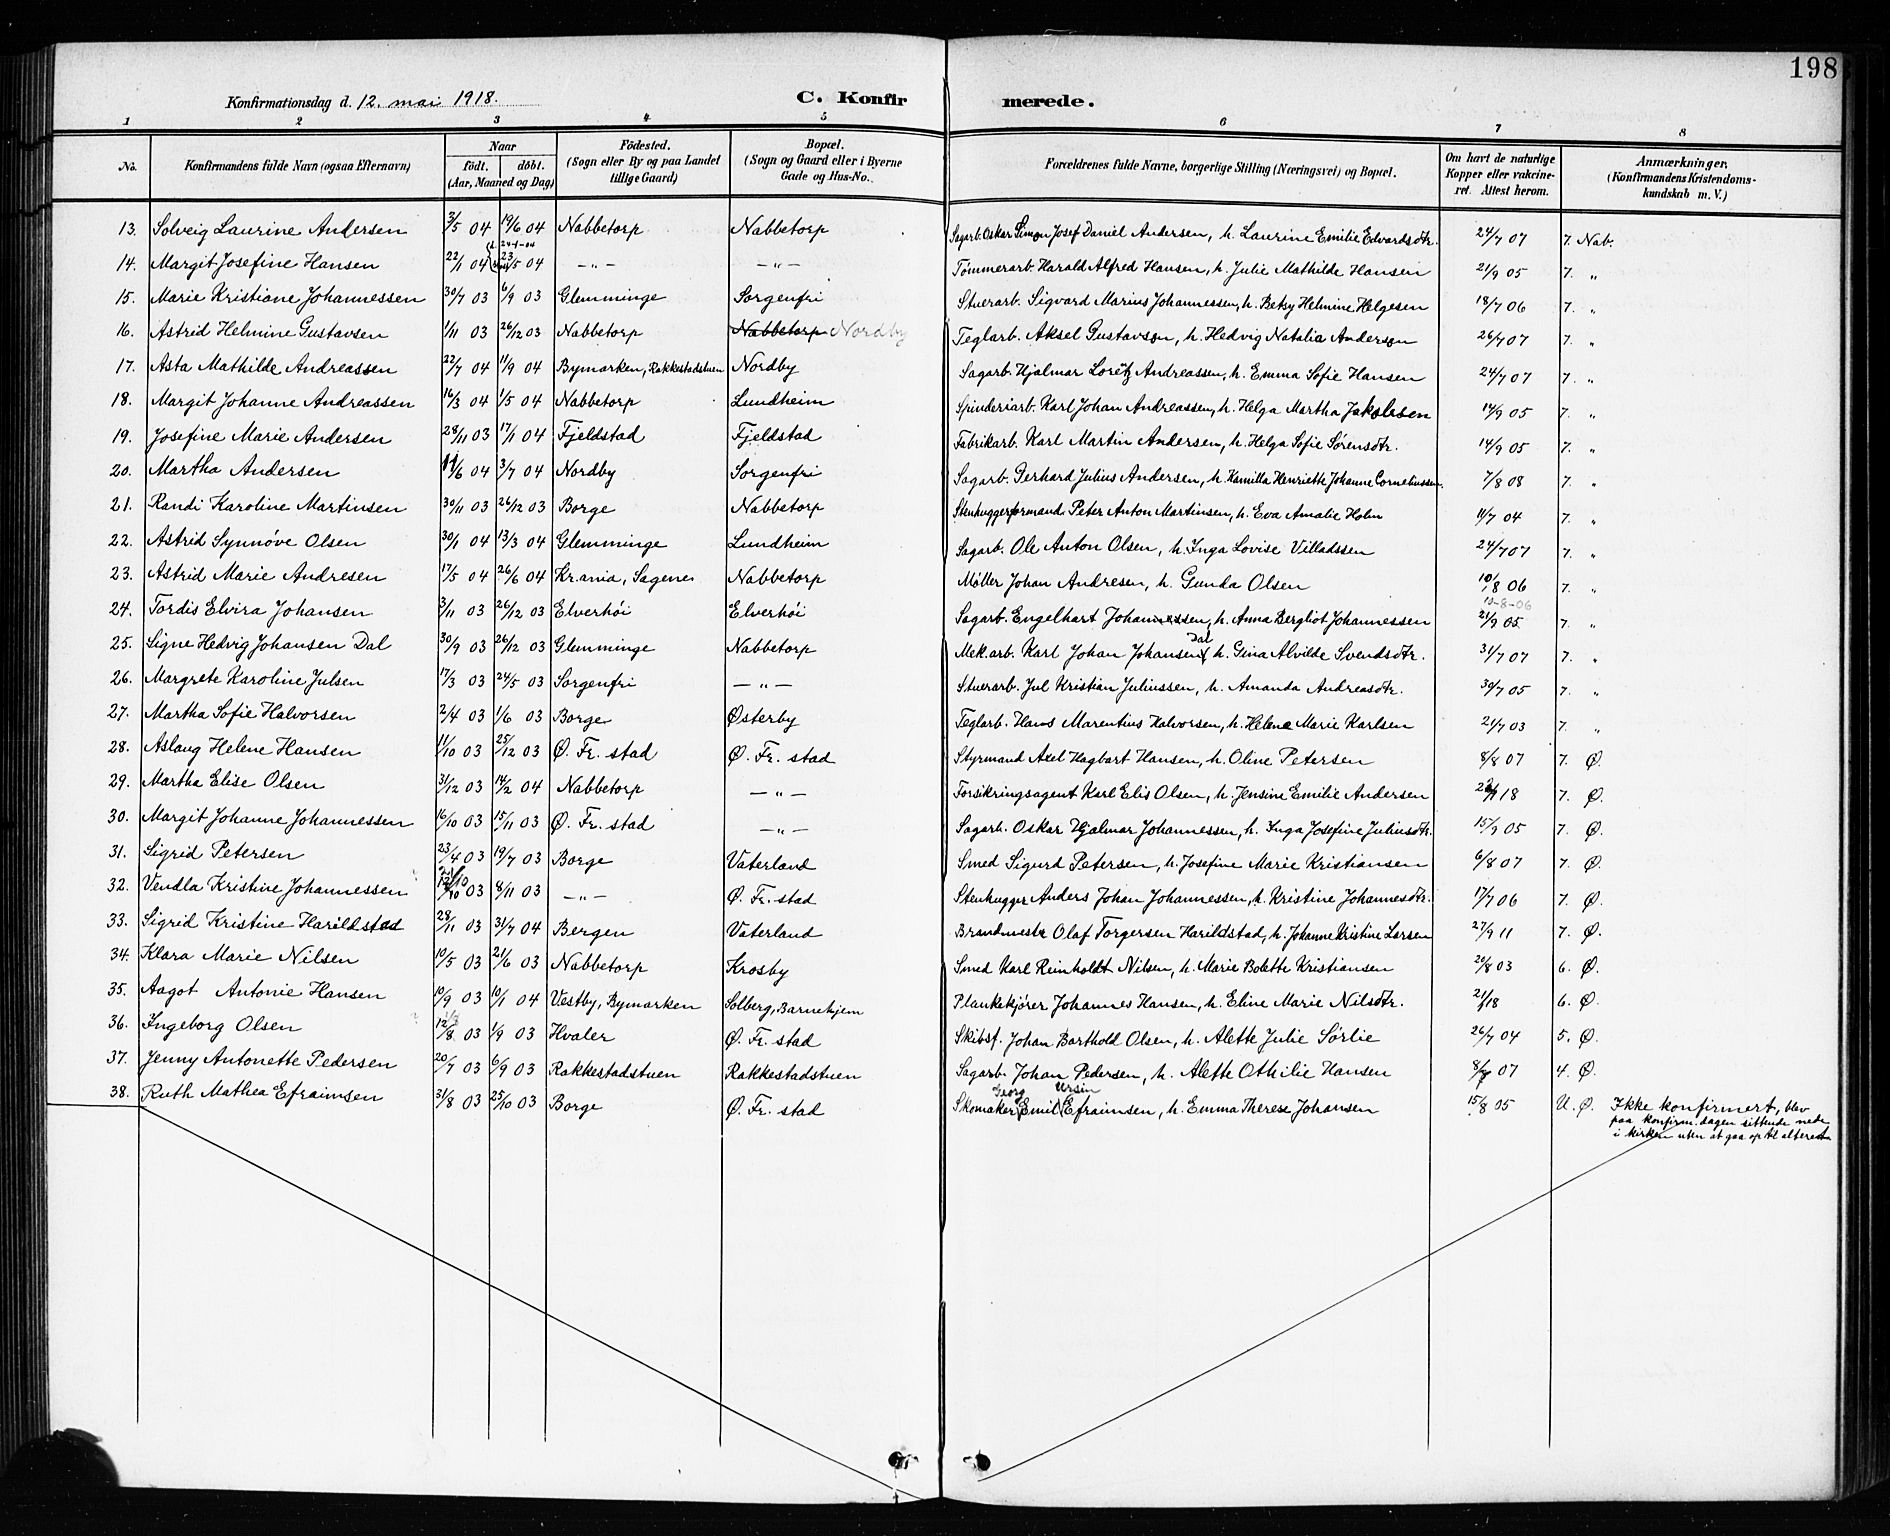 198
Konfirmationsdag d. 12. mai 1918. C. Konfirmerede.
1 2 3 4 5 6 7 8
No. Konfirmandens fulde Navn (ogsaa Efternavn) Naar født. døbt. (Aar, Maaned og Dag) Födested. (Sogn eller By og paa Landet tillige Gaard) Bopæl. (Sogn og Gaard eller i Byerne Gade og Hus-No. Forældrenes fulde Navne, borgerlige Stilling (Næringsvei) og Bopæl. Om havt de naturlige Kopper eller vakcineret. Attest herom. Anmærkninger, (Konfirmandens Kristendomskundskab m. V.)
13. Solveig Laurine Andersen 3/5 04 19/6 04 Nabbetorp Nabbetorp Sagarb. Oskar Simon Josef Daniel Andersen, h. Laurine Emilie Edvardsdtr. 24/7 07 7. Nab.
14. Margit Josefine Hansen 22/1 04 24-1-04 23/5 04 — „ — — „ — Tømmerarb. Harald Alfred Hansen, h. Julie Mathilde Hansen 21/9 05 7. „
15. Marie Kristiane Johannessen 30/7 03 6/9 03 Glemminge Sorgenfri Stuerarb. Sigvard Marius Johannessen, h. Betsy Helmine Helgesen 18/7 06 7. „
16. Astrid Helmine Gustavsen 1/11 03 26/12 03 Nabbetorp Nabbetorp Nordby Teglarb. Aksel Gustavson, h. Hedvig Natalia Anderson 26/7 07 7. „
17. Asta Mathilde Andreassen 22/7 04 11/9 04 Bymarken, Rakkestadstuen Nordby Sagarb. Hjalmar Loretz Andreassen, h. Emma Sofie Hansen 24/7 07 7. „
18. Margit Johanne Andreassen 16/3 04 1/5 04 Nabbetorp Lundheim Spinderiarb. Karl Johan Andreassen, h. Helga Martha Jakobsen 14/9 05 7. „
19. Josefine Marie Andersen 28/11 03 17/1 04 Fjeldstad Fjeldstad Fabrikarb. Karl Martin Andersen, h. Helga Sofie Sørensdtr. 14/9 05 7. „
20. Martha Andersen 11/6 04 3/7 04 Nordby Sorgenfri Sagarb. Gerhard Julius Andersen, h. Kamilla Henriette Johanne Corneliussen. 7/8 08 7. „
21. Randi Karoline Martinsen 30/11 03 26/12 03 Borge Nabbetorp Stenhuggerformand Peter Anton Martinsen, h. Eva Amalie Holm 11/7 04 7. „
22. Astrid Synnøve Olsen 30/1 04 13/3 04 Glemminge Lundheim Sagarb. Ole Anton Olsen, h. Inga Lovise Villadssen 24/7 07 7. „
23. Astrid Marie Andresen 17/5 04 26/6 04 Kr.ania, Sagenes Nabbetorp Møller Johan Andresen, h. Gunda Olsen 10/8 06 7. „
10-8-06
24. Tordis Elvira Johansen 3/11 03 26/12 03 Elverhöi Elverhöi Sagarb. Engelhart Johannessen, h. Anna Bergliot Johannessen 21/9 05 7. „
25. Signe Hedvig Johansen Dal 30/9 03 26/12 03 Glemminge Nabbetorp Mek.arb. Karl Johan Johansen Dal h. Gina Alvilde Svendsdtr. 31/7 07 7. „
26. Margrete Karoline Julsen 17/3 03 24/5 03 Sorgenfri — „ — Stuerarb. Jul Kristian Juliussen, h. Amanda Andreasdtr. 30/7 05 7. „
27. Martha Sofie Halvorsen 2/4 03 1/6 03 Borge Østerby Teglarb. Hans Marentius Halvorsen, h. Helene Marie Karlsen 21/7 03 7. „
28. Aslaug Helene Hansen 11/10 03 25/12 03 Ø. Fr. stad Ø. Fr. stad Styrmand Axel Hagbart Hansen, h. Oline Petersen 8/8 07 7. Ø.
29. Martha Elise Olsen 31/12 03 14/2 04 Nabbetorp — „ — Forsikringsagent Karl Elis Olsen, h. Jensine Emilie Andersen 18 7. Ø.
30. Margit Johanne Johannessen 16/10 03 15/11 03 Ø. Fr. stad — „ — Sagarb. Oskar Hjalmar Johannessen, h. Inga Josefine Juliusdtr. 15/9 05 7. Ø.
31. Sigrid Petersen 23/4 03 19/7 03 Borge Vaterland Smed Sigurd Petersen, h. Josefine Marie Kristiansen 6/8 07 7. Ø.
32. Vendla Kristine Johannessen 03 8/11 03 — „ — Ø. Fr. stad Stenhugger Anders Johan Johannessen, h. Kristine Johannesdtr. 17/7 06 7. Ø.
33. Sigrid Kristine Harildstad 28/11 03 31/7 04 Bergen Vaterland Brandmester Olaf Torgersen Harildstad, h. Johanne Kristine Larsen 27/9 11 7. Ø.
34. Klara Marie Nilsen 10/5 03 21/6 03 Nabbetorp Krosby Smed Karl Reinholdt Nilsen, h. Marie Bolette Kristiansen 20/8 03 6. Ø.
35. Aagot Antonie Hansen 10/9 03 10/1 04 Vestby, Bymarken Solberg, Barnehjem Plankekjører Johannes Hansen, h. Eline Marie Nilsdtr. 21/1 18 6. Ø.
36. Ingeborg Olsen 12/8 03 1/9 03 Hvaler Ø. Fr. stad Skibsf. Johan Barthold Olsen, h. Alette Julie Sørlie 26/7 04 5. Ø.
37. Jenny Antonette Pedersen 20/7 03 6/9 03 Rakkestadstuen Rakkestadstuen Sagarb. Johan Pedersen, h. Alette Othilie Hansen 07 4. Ø.
38. Ruth Mathea Efraimsen 31/8 03 25/10 03 Borge Ø. Fr. stad Skomaker Georg Emil Ursin Efraimsen, h. Emma Therese Johansen 15/8 05 U. Ø. Ikke konfirmert, blev
paa konfirm.dagen sittende nede
i kirken uten at gaa op til alteret